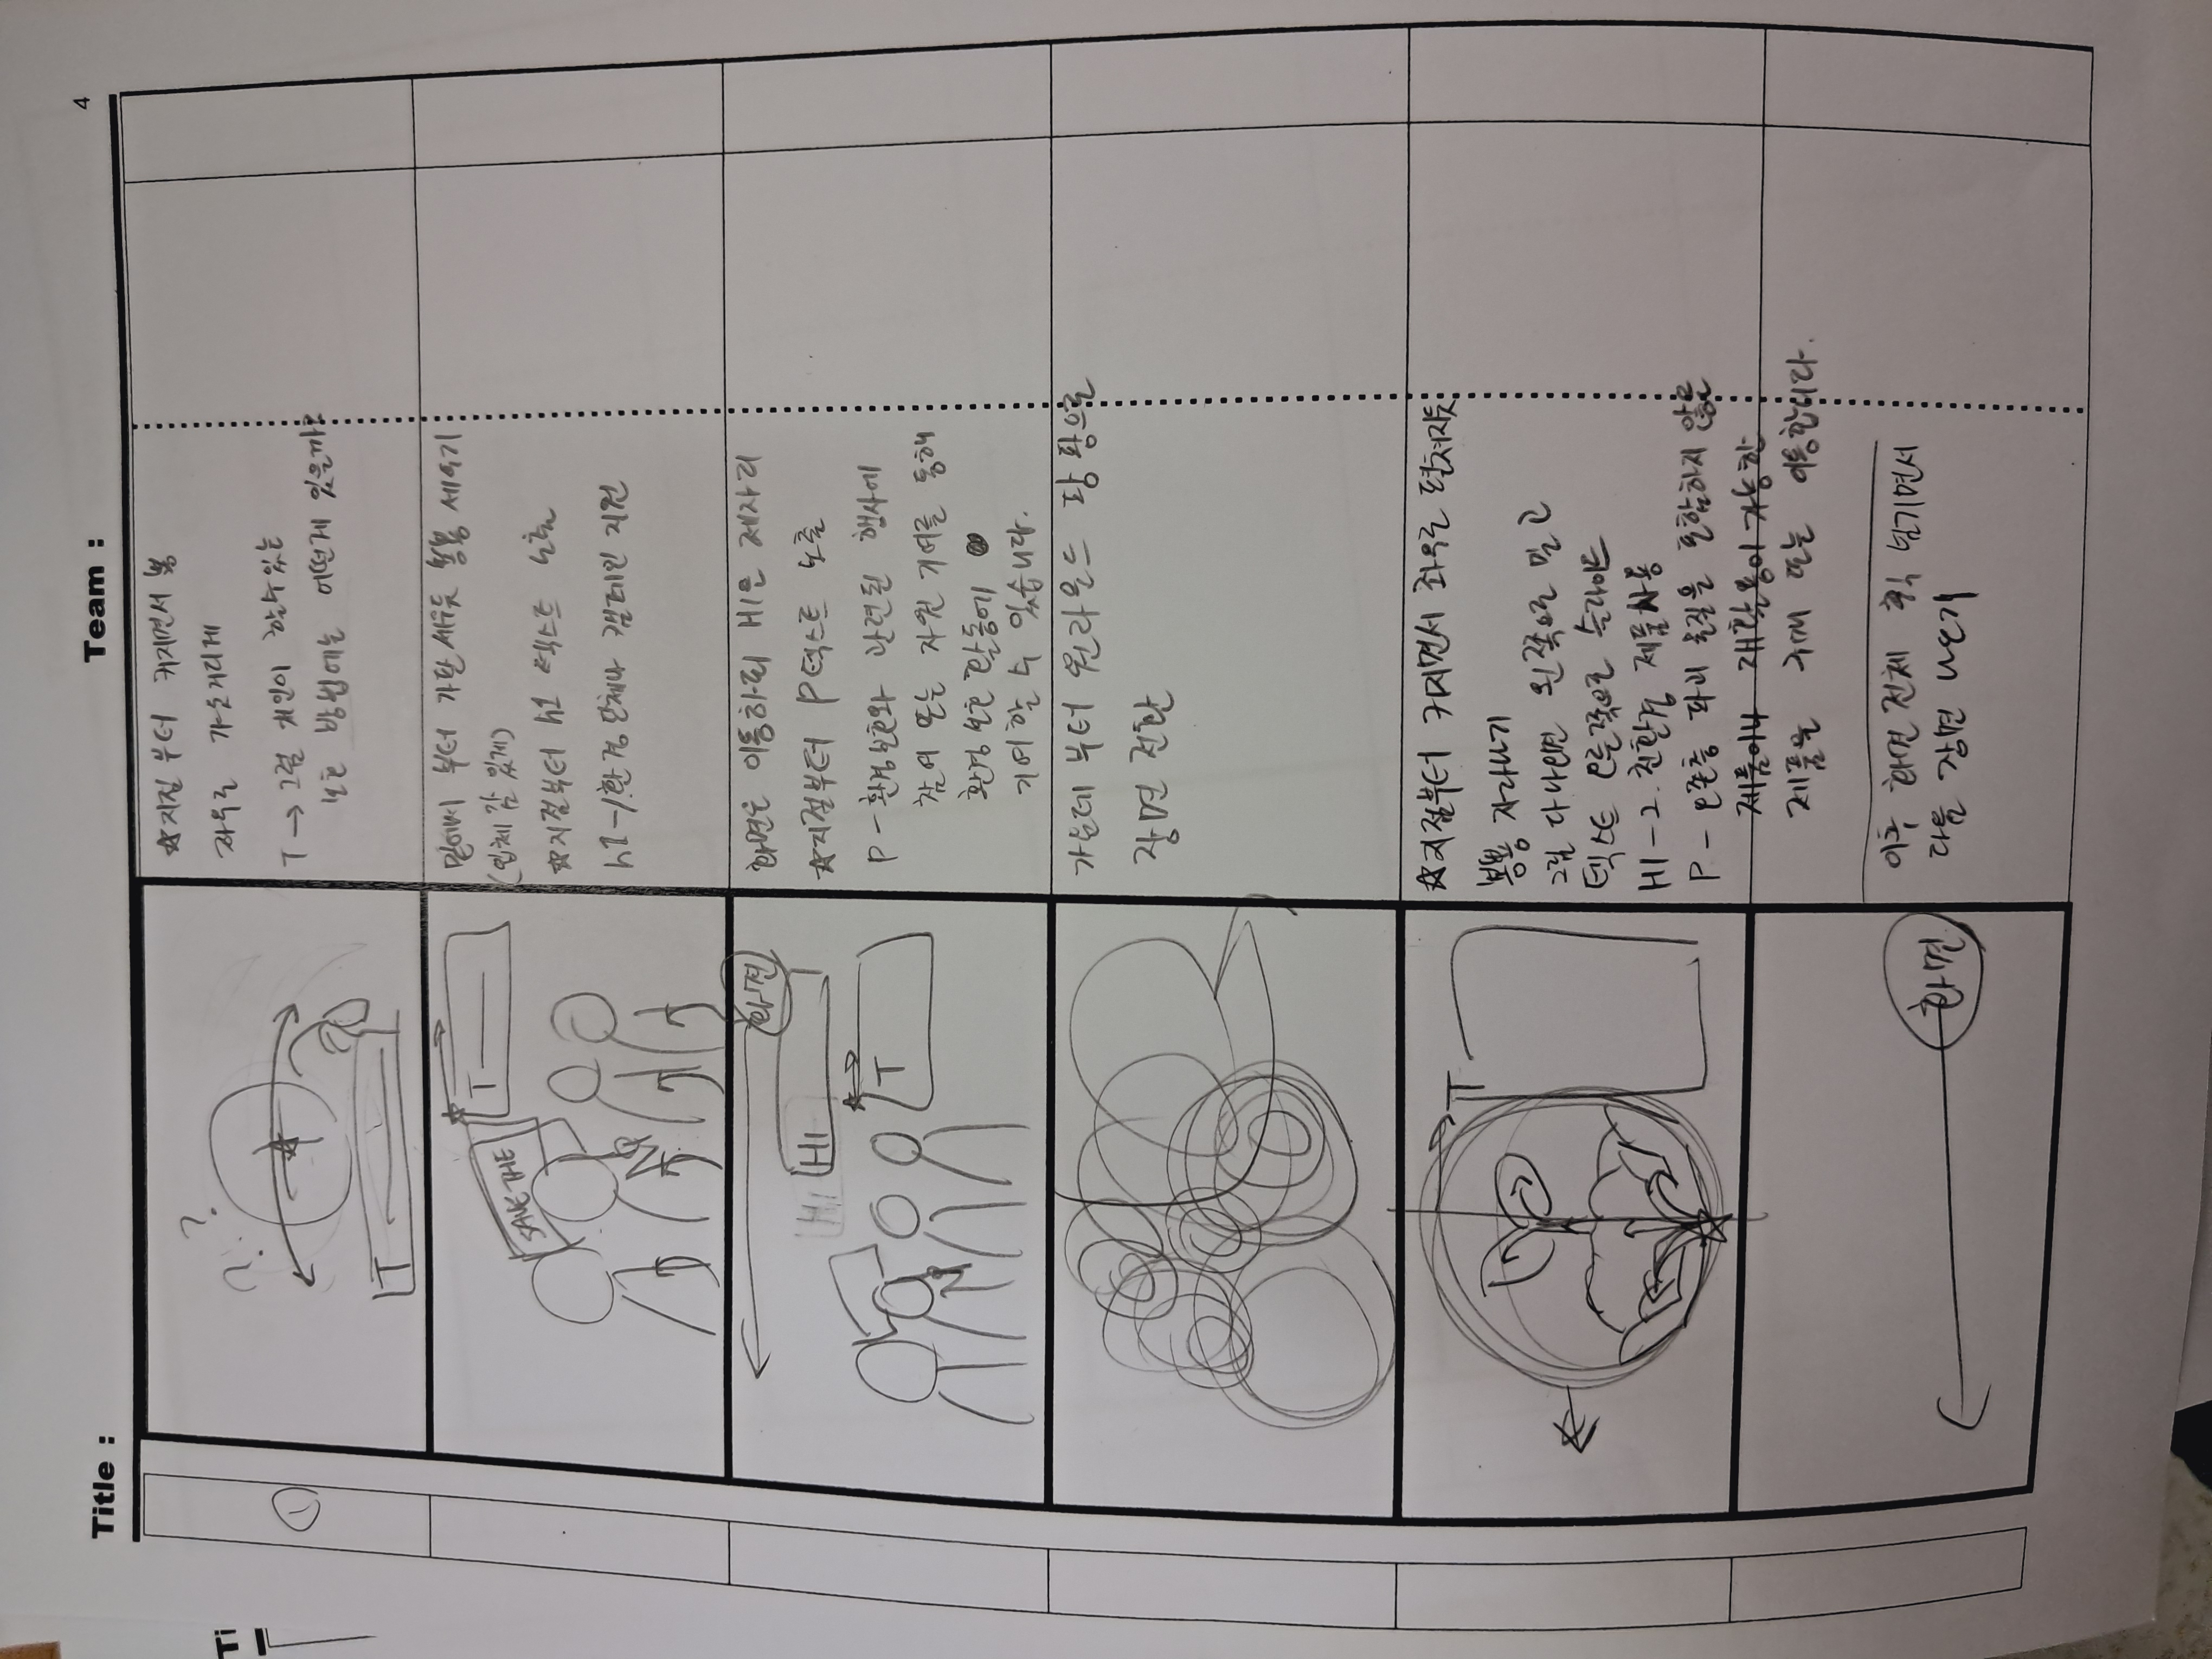 Title :
Team :
4
Ti
①
? ?
T
☆지점 부터 커지면서 뿅
좌우로 갸웃거리게
T → 그럼 개인이 할수있는
보호 방법에는 어떤게 있을까요
SAVE THE
T
밑에서 부터 가판 세우듯 뿅뿅 세우기
(입체감 있게)
☆지점부터 h1 텍스트 노출
h1-1.환경단체나 캠페인 지원
화면
H1
H1
T
화면은 이동하되 H1은 제자리
☆지점부터 P텍스트 노출
P - 환경보호와 관련된 행사에
참여 또는 자원 기여를 통해
환경 보호 활동에
기여할 수 있습니다.
가운데 부터 원라운드 팡팡으로
장면 전환
T
☆지점부터 커지면서 좌우로 펼쳐지듯
뿅뿅 자라나기
그림 다 나오면 왼쪽으로 밀고
텍스트 오른쪽으로 슬라이드
H1 - 2. 친환경 제품사용
P - 오존층 파괴 물질을 포함하지 않은
제품이나 재활용이 가능한
제품을 구매 또는 이용합니다.
화면
이후 화면 전체 휙 넘기면서
다음 장면 나오기